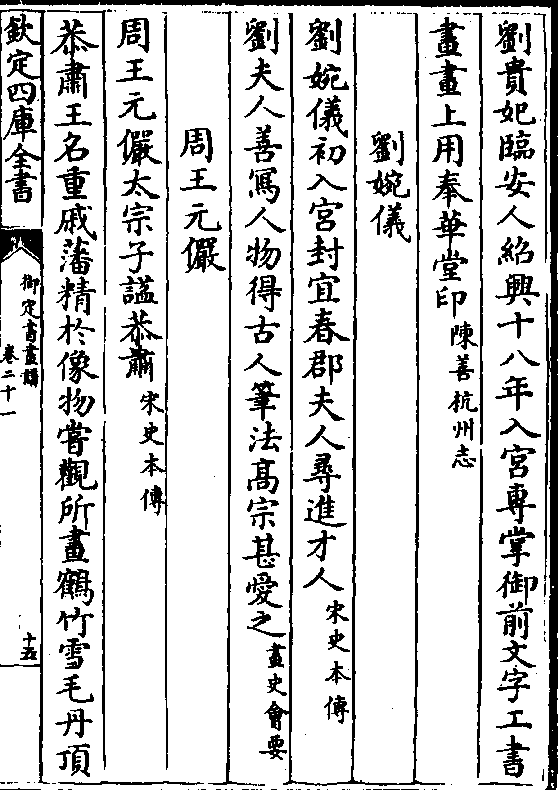 劉貴妃臨安人紹興十八年入宮專掌御前文字工書
畫畫上用奉華堂印陳善杭州志
劉婉儀
劉婉儀初入宮封宜春郡夫人尋進才人宋史本傳
劉夫人善寫人物得古人筆法髙宗甚愛之畫史會要
周王元儼
周王元儼太宗子諡恭肅宋史本傳
恭肅王名重戚藩精於像物嘗觀所畫鶴竹雪毛丹頂
欽定四庫全書
御定書畫譜
卷二十一
十五